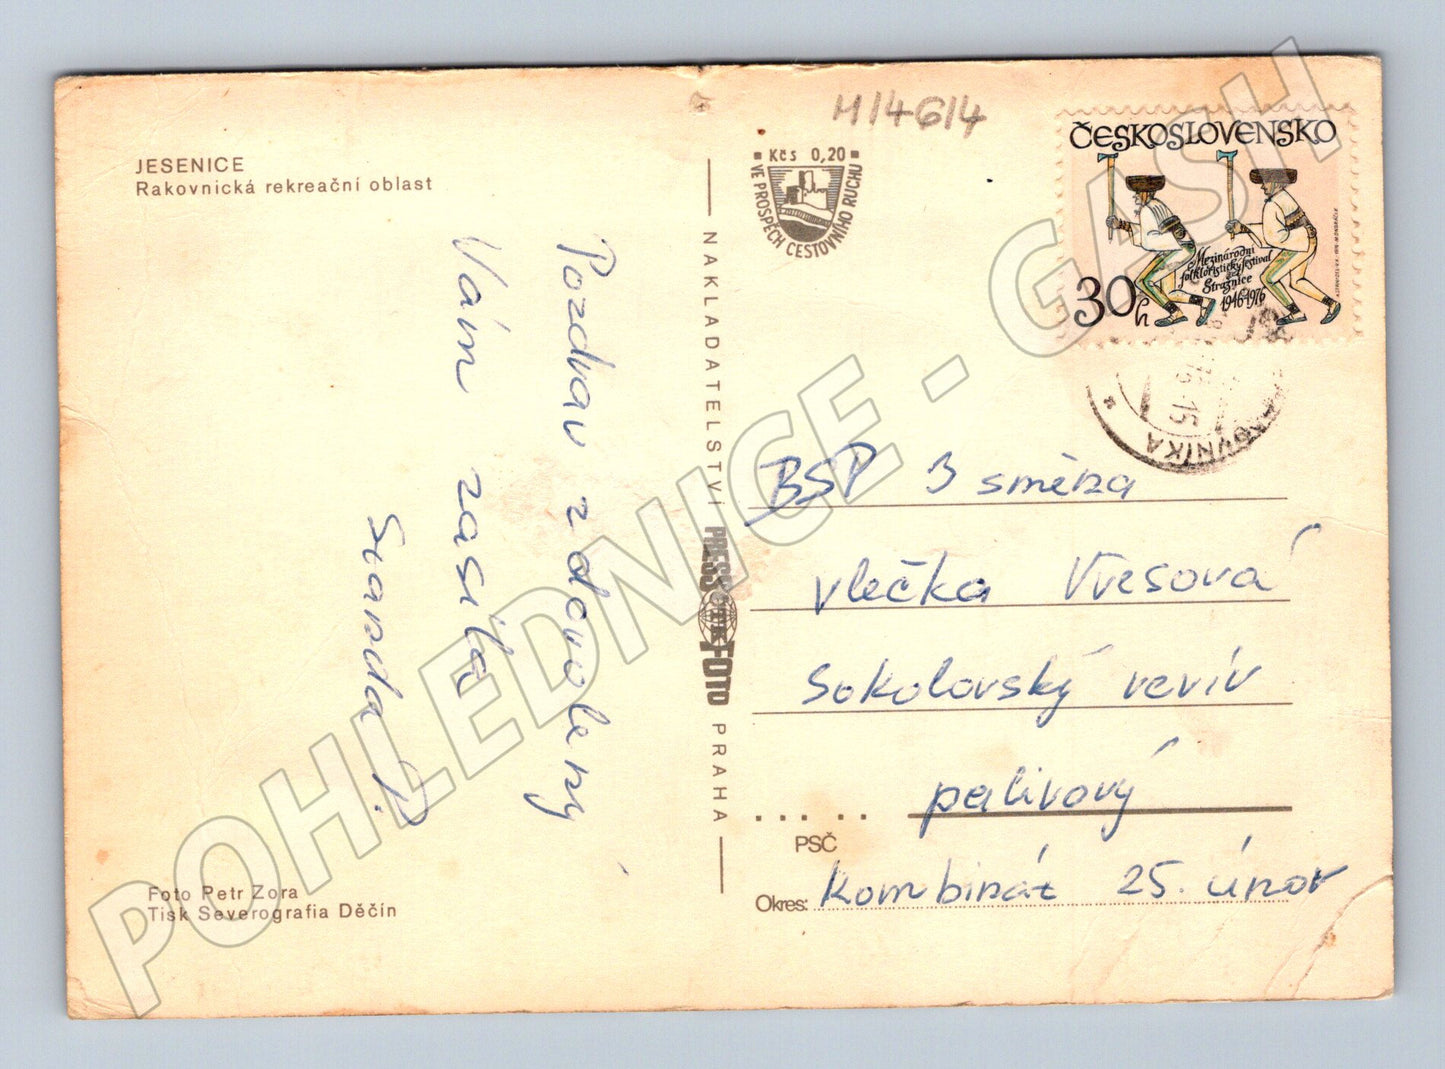 JESENICE
Rakovnická rekreační oblast
Pozdrav z dovoleny
Vám zasílá
Franda P.
Foto Petr Zora
Tisk Severografia Děčín
NAKLADATELSTVÍ PRESSFOTO PRAHA
ČTK
Kčs 0,20
VE PROSPĚCH CESTOVNÍHO RUCHU
M14614
ČESKOSLOVENSKO
Mezinárodní
folkloristický festival
Strážnice
1946-1976
30h
15
BSP 3 směna
vlečka Vřesová
Sokolovský revír
palivový
PSČ
Okres: Kombinát 25. únor
POHLEDNICE - GASH